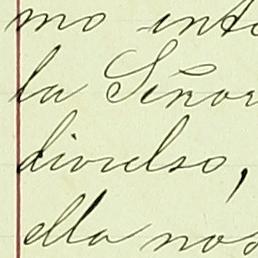 mo int
la Señor
divielso,
ella nos